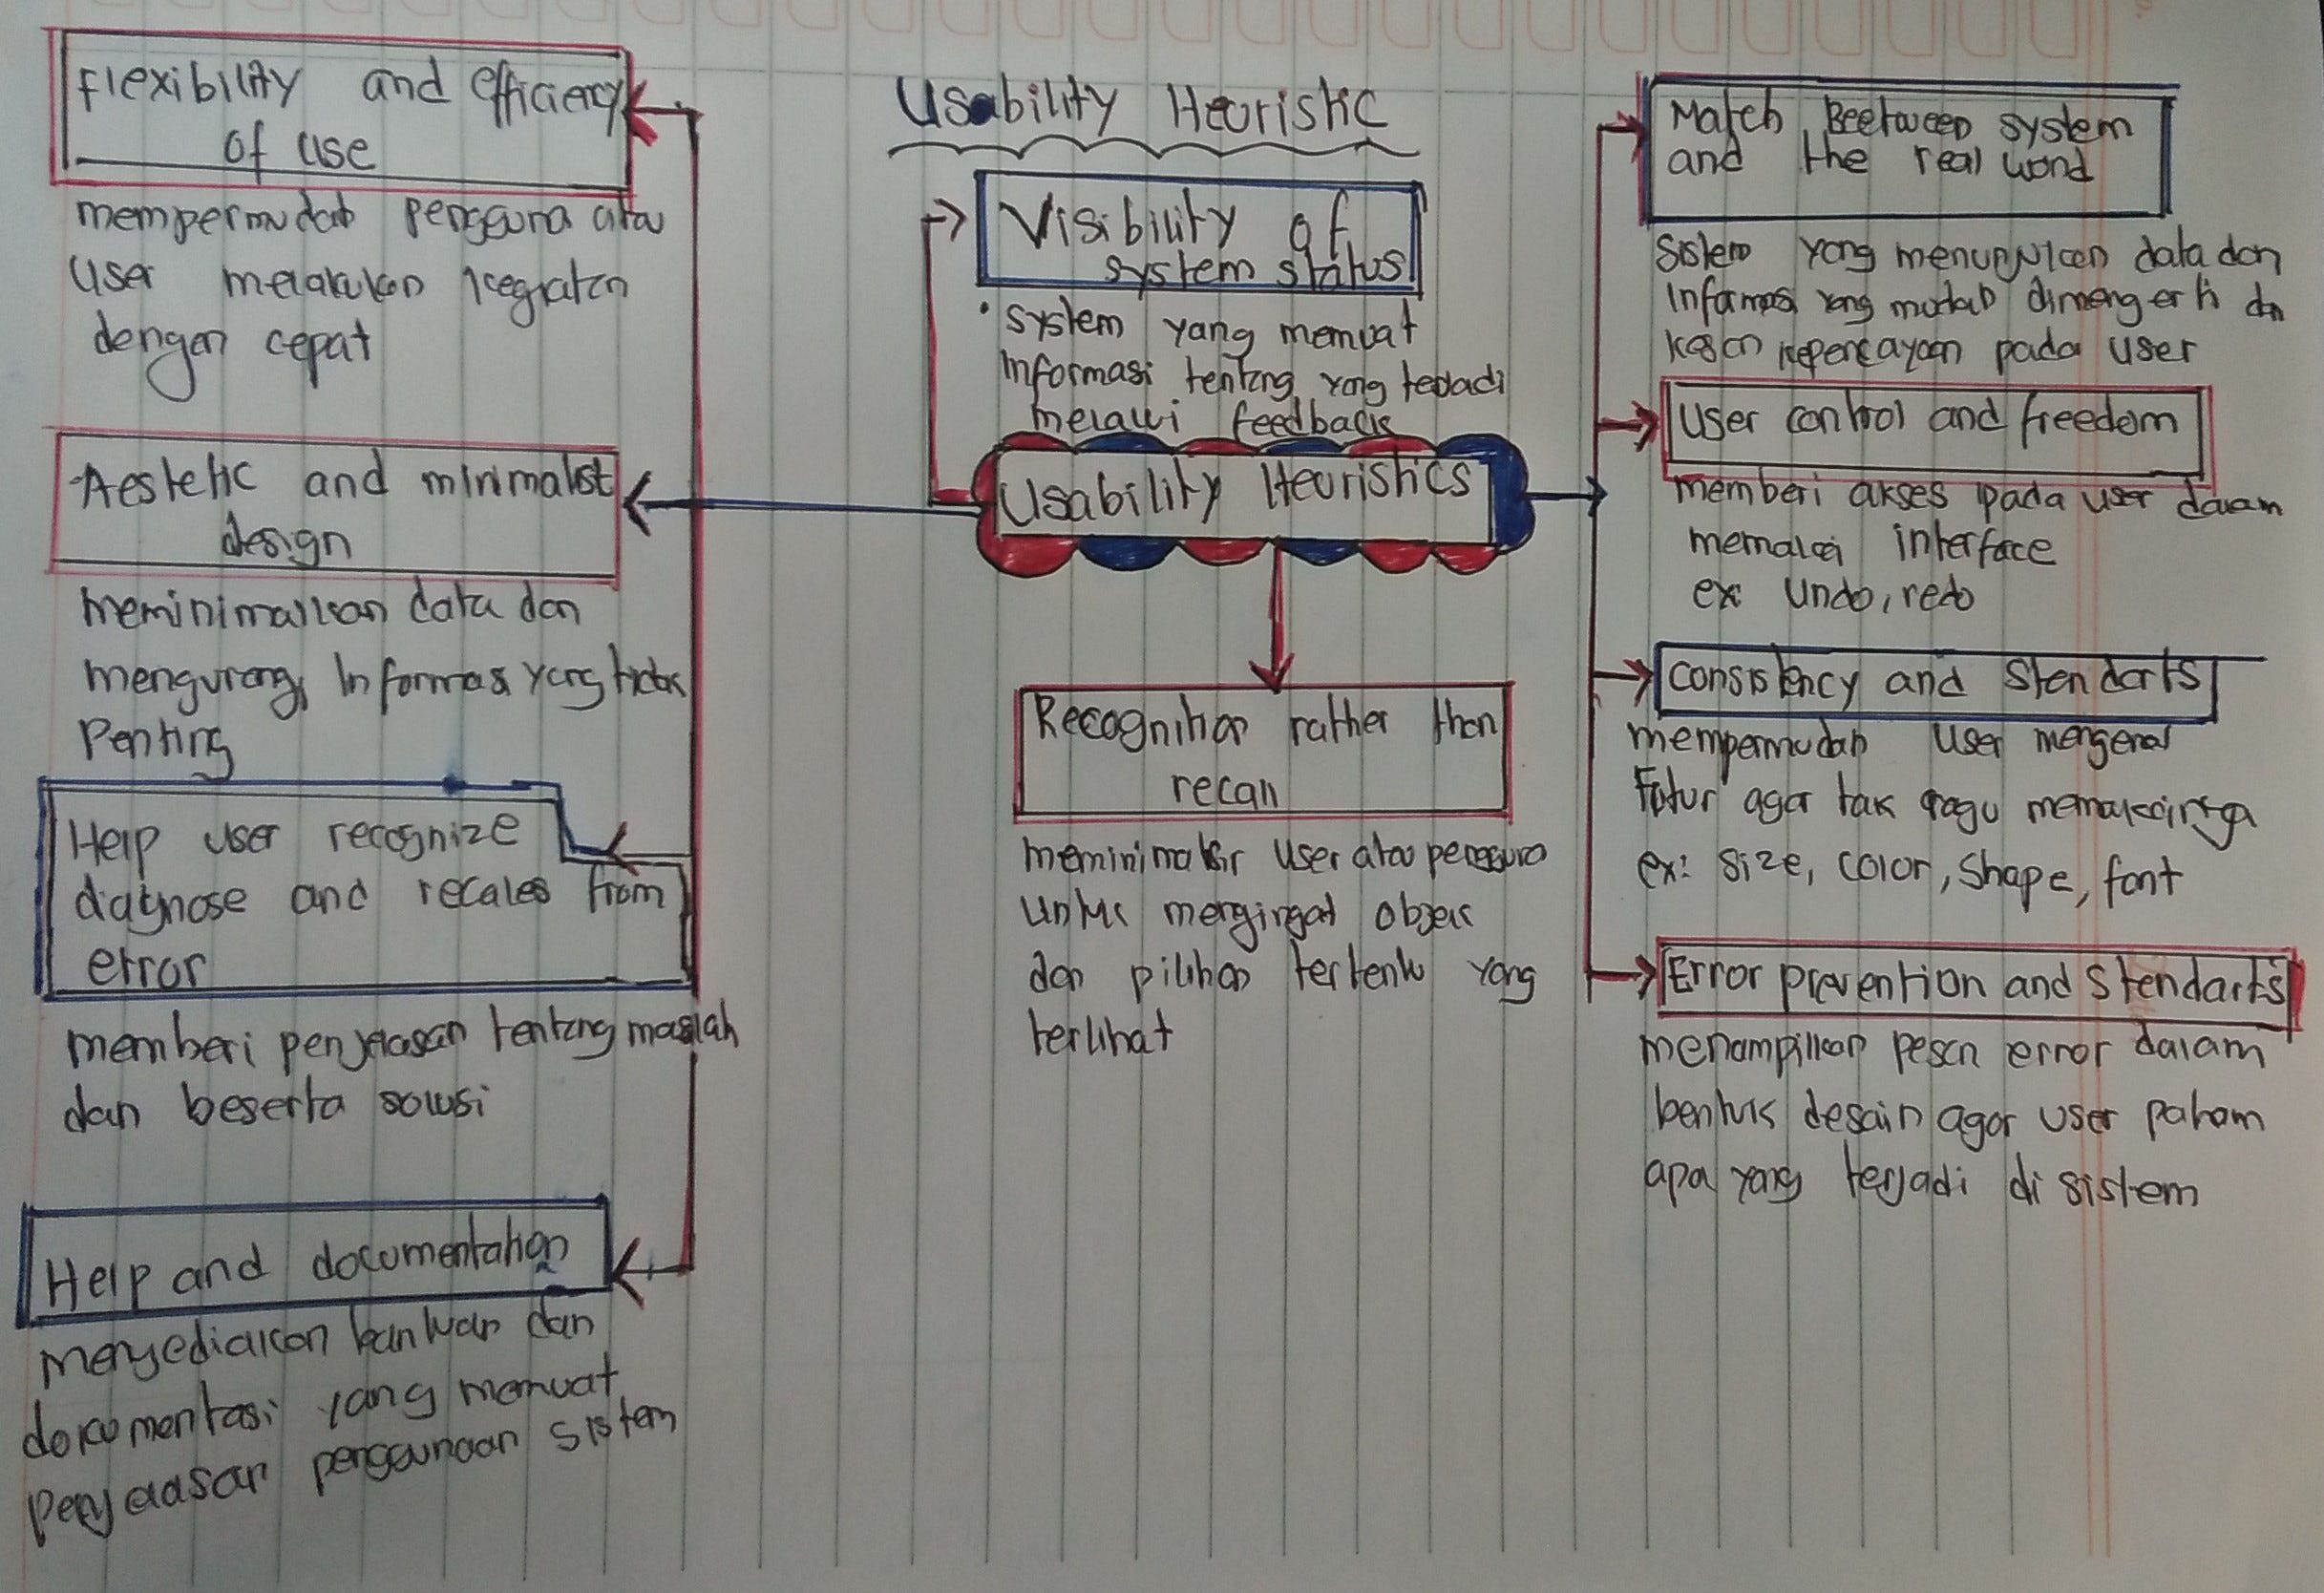 Usability Heuristic
flexibility and efficiency
of use
mempermudah pengguna atau
user melakukan kegiatan
dengan cepat
Aestetic and minimalist
design
meminimalkan data dan
mengurangi Informasi yang tidak
Penting
Help user recognize
diagnose and recales from
error
memberi penjelasan tentang maslah
dan beserta solusi
Help and documentation
menyediakan bantuan dan
dokumentasi yang memuat
penjelasan penggunaan sistem
Visibility of
system status
• system yang memuat
Informasi tentang yang terjadi
melalui feedback
Usability Heuristics
Recognition rather than
recall
meminimalsir user atau pengguna
untuk mengingat objek
dan pilihan tertentu yang
terlihat
Match Beetween system
and the real word
Sistem yang data dan
Informasi yang mudah dimengerti dan
kesan kepercayaan pada user
User control and freedom
memberi akses pada user dalam
memakai interface
ex undo, redo
consistency and Stendarts
mempermudah user mengenal
Fitur agar tak ragu memakainya
ex: size, color, shape, font
Error prevention and Stendarts
menampilkan pesan error dalam
bentuk desain agar user paham
apa yang terjadi di sistem